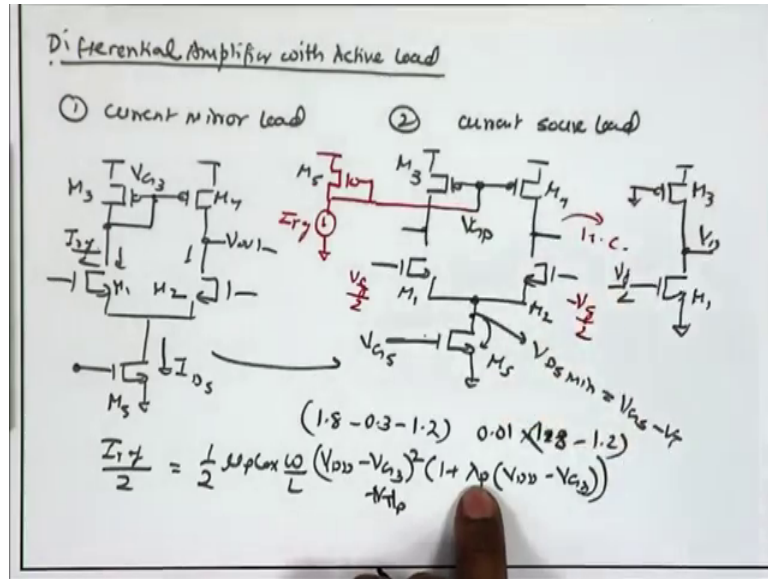 Differential Amplifier with Active Load
① current mirror load ② current source load
M3 VG3 M4
Vout
ITy/2
M1 M2
IDS
M5
M5
ITy
M3 M4
VGp
I.T.C.
Vd/2 -Vd/2
M1 M2
VG5 M5
VDS min = VGS - VT
M3
V0
Vd/2 M1
(1.8 - 0.3 - 1.2) 0.01 × (1.8 - 1.2)
ITy/2 = 1/2 μpCox W/L (VDD - VG3)² (1 + λp (VDD - VG3))
-VTp